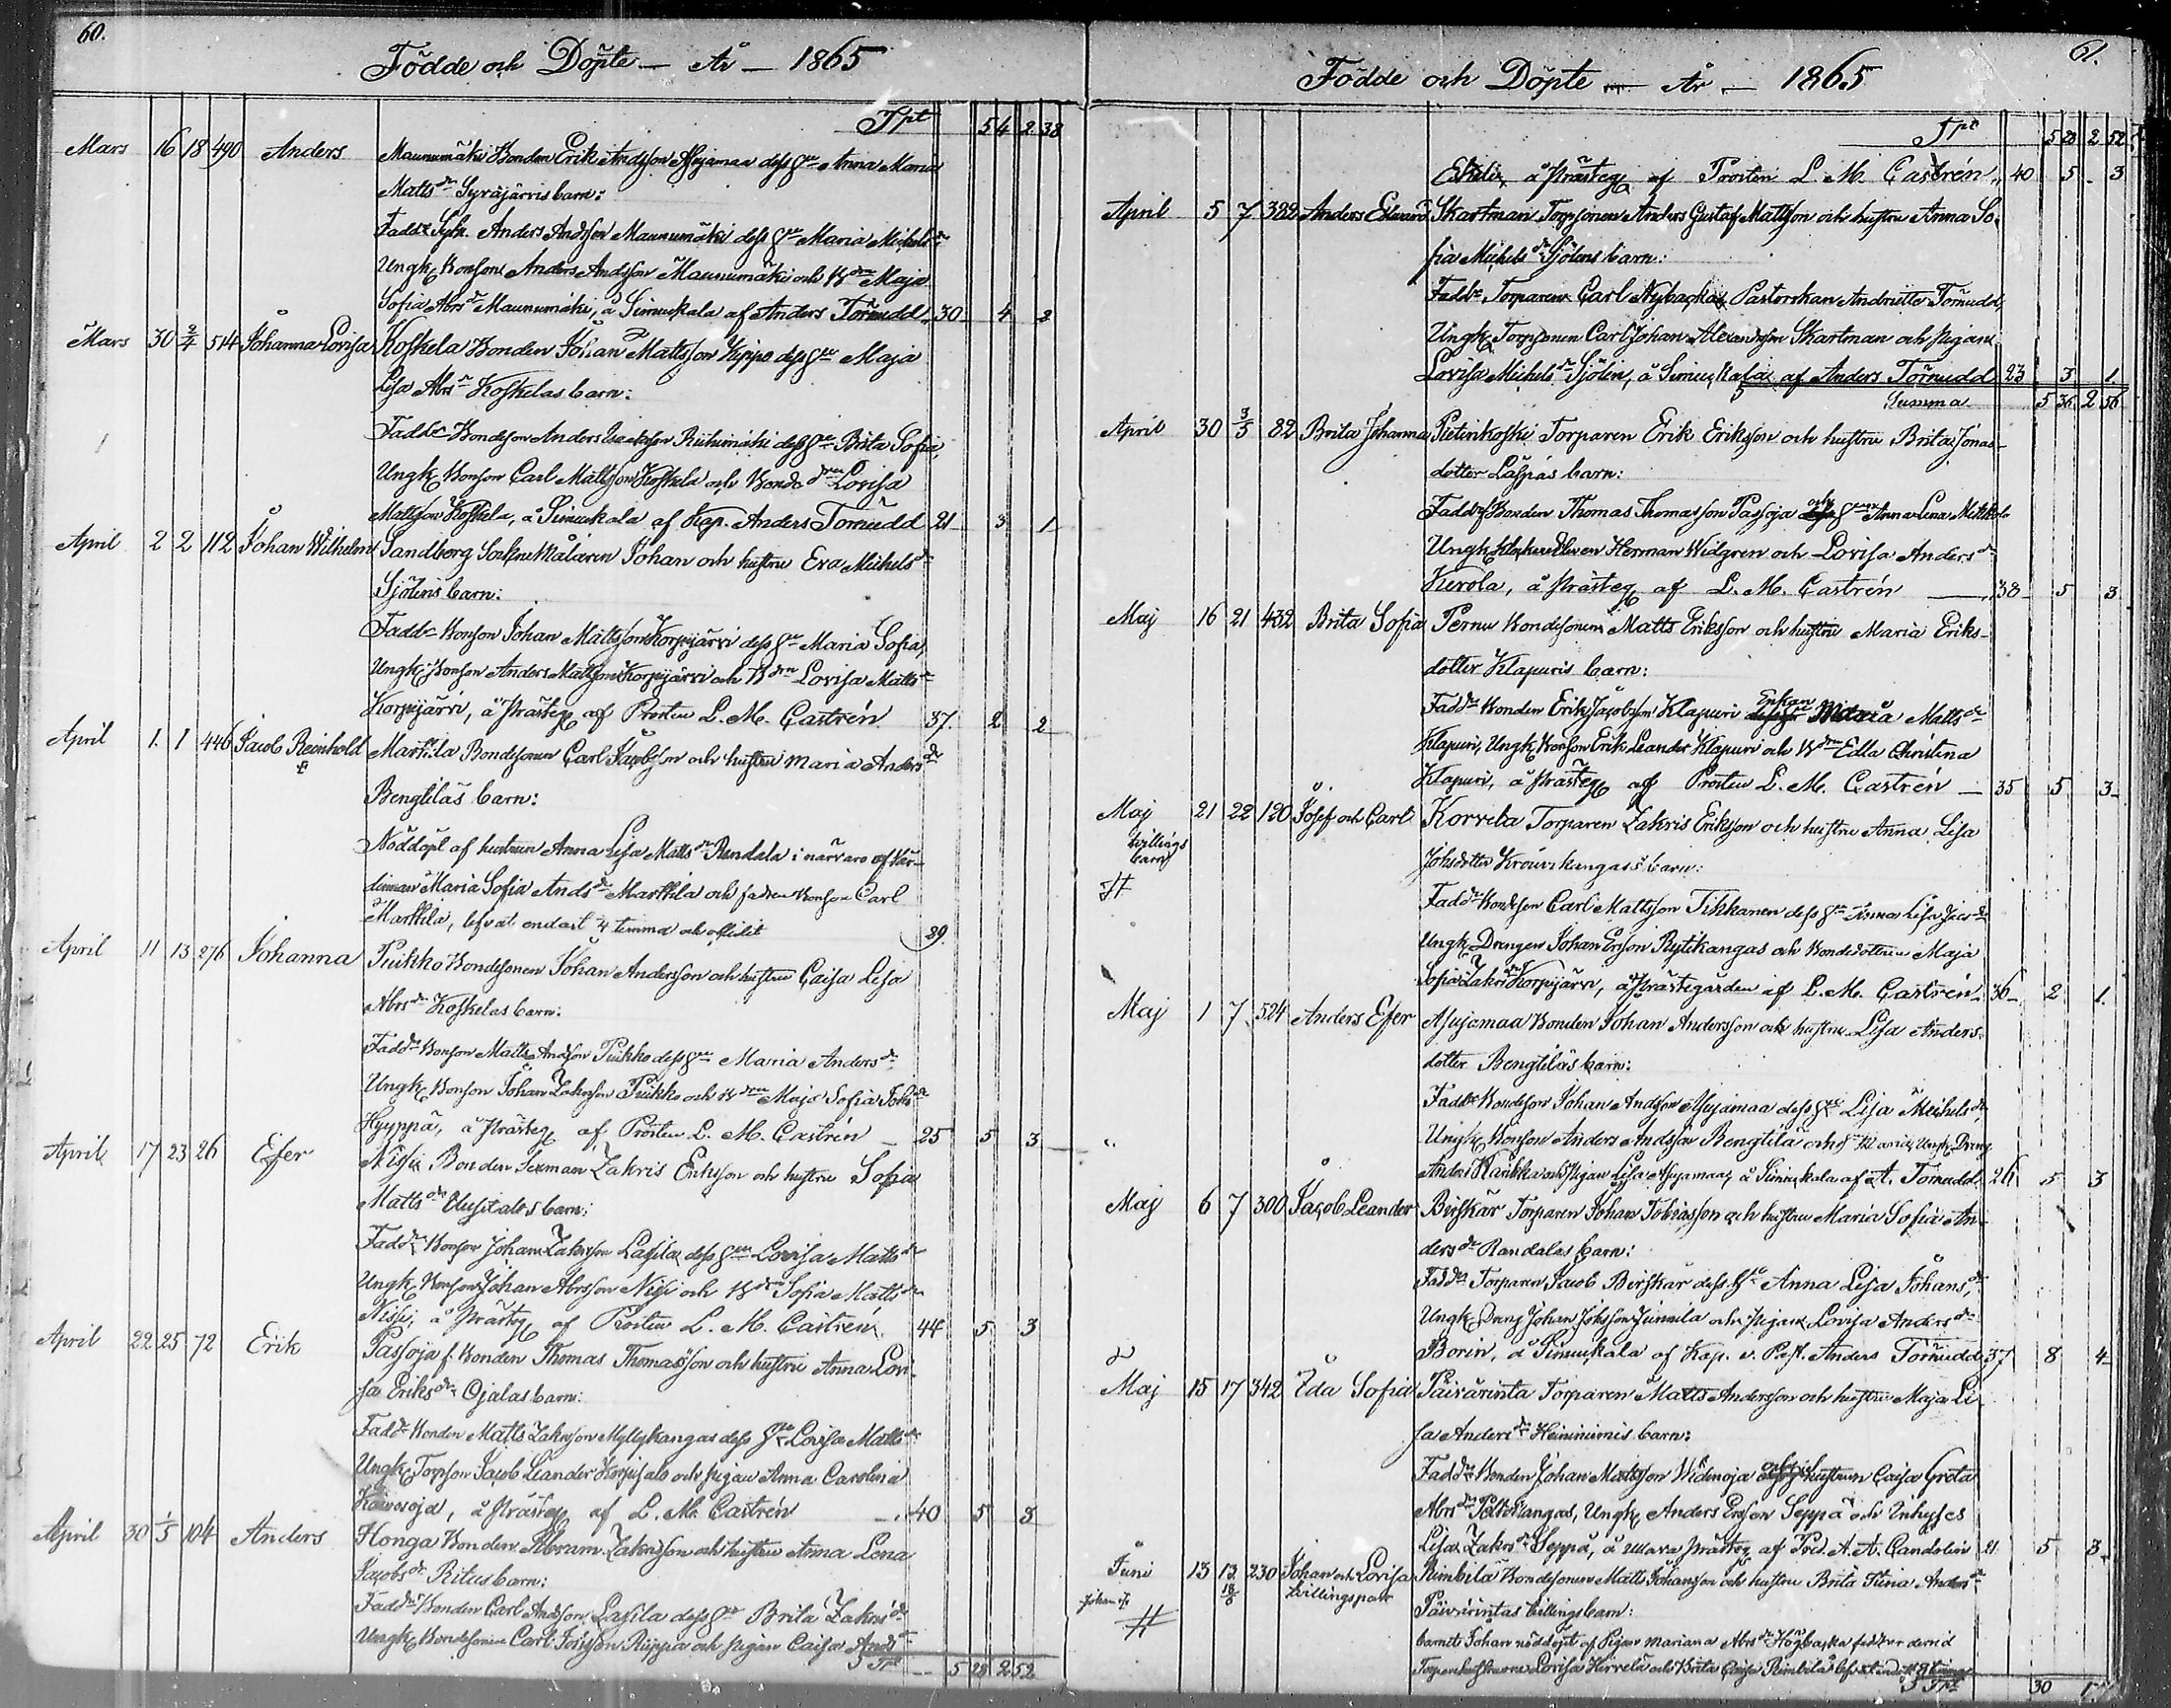 60.
Födde och Döpte — År — 1865
Tpt 54 2 38
Mars 16 18 490 Anders Maunumäki Bonden Erik Andsson Asujamaa dess hu Anna Maria
Matts dr Syräjärvis barn:
Fadd: Anders Andsson Maunumäki dess hu Maria Michels dr
Ungk. Bonson Anders Andsson Maunumäki och B.dren Maja
Sofia Abrs dr Maunumäki, å Simuckala af Anders Törnudd 30 4 2
Mars 30 2/4 514 Johanna Lovisa Koskela Bonden Johan Mattsson Hippo dess hu Maja
Lisa Abr Koskelas barn:
Fadd. Bondeson Anders Isaksson Riihimäki dess hu Brita Sofia,
Ungk Bonson Carl Mattsson Koskela och Bonde dren Lovisa
Mattsson Koskela, å Simuckala af Kap. Anders Törnudd 21 3 1
April 2 2 112 Johan Wilhelm Sandberg Sockne Målaren Johan och hustru Eva Michels dr
Sjölins barn:
Fadd Bonson Johan Mattsson Korpijärvi dess hu Maria Sofia,
Ungk Bonson Anders Mattsson Korpijärvi och B dren Lovisa Matts dr
Korpijärvi, å prästeg af Prosten L. M. Castrén 37. 2 2
April 1. 1 446 Jacob Reinhold Marttila Bondesonen Carl Jacobsson och hustru Maria Anders dr
Bengtiläs barn:
Nöddöpt af hustrun Anna Lisa Matts dr Randala i närvaro af
Maria Sofia Ands dr Marttila och fadren Bonson Carl
Marttila, lefvat endast 4 timma och aflidit 29.
April 11 13 276 Johanna Puikko Bondesonen Johan Andersson och hustru Caisa Lisa
Abrs dr Koskelas barn:
Fadd Bonson Matts Andson Puikko dess hu Maria Anders dr
Ungk Bonson Johan Zakrsson Puikko och B dren Maja Sofia Johs dr
Hyyppä, å prästeg af Prosten L. M. Castrén 25 5 3
April 17 23 26 Efer Nissi Bonden Sexman Zakris Eriksson och hustru Sofia
Matts dr Uusitalos barn:
Fadd Bonson Johan Zakrsson Lassila dess hu Lovisa Matts dr
Ungk Bonson Johan Abrsson Nissi och B dren Sofia Matts dr
Nissi, å Prästeg af Prosten L. M. Castrén 44 5 3
April 22 25 72 Erik Passoja f. Bonden Thomas Thomasson och hustru Anna Lovi-
sa Eriks dr Ojalas barn:
Fadd Bonden Matts Zakrsson Myllykangas dess hu Lovisa Matts dr
Ungk Torpson Jacob Leander Korpisalo och pigan Anna Carolina
Kaivosoja, å prästeg af L. M. Castrén 40 5 3
April 30 1/5 104 Anders Honga Bonden Abram Zakrsson och hustru Anna Lena
Jacobs dr Ritus barn:
Fadd Bonden Carl Andson Lassila dess hu Brita Zakris dr
Ungk Bondesonen Carl Johsson och pigan Caisa Ands dr
Tpt 5 28 2 52
61.
Födde och Döpte — År — 1865
Tpt 5 28 2 52
å prästeg af Prosten L. M. Castrén 40 5 3
April 5 7 382 Anders Edvard Skartman Torpsonen Anders Gustaf Mattsson och hustru Anna So-
fia Michels dr Sjölins barn:
Fadd Torparen Carl Nybacka, Pastorskan Andriette Törnudd,
Ungk Torpsonen Carl Johan Alexandsson Skartman och pigan
Lovisa Michels dr Sjölin, å Simuckala af Anders Törnudd 23 3 1
Summa 5 36 2 56
April 30 3/5 82 Brita Johanna Pietinkoski Torparen Erik Eriksson och hustru Brita Jonas-
dotter barn:
Fadd Bonden Thomas Thomasson Passoja och hu Anna Lena
Ungk Herman Widgren och Lovisa Anders dr
Kerola, å prästeg af L. M. Castrén 38 5 3
Maj 16 21 432 Brita Sofia Pernu Bondesonen Matts Eriksson och hustru Maria Eriks-
dotter Klapuris barn:
Fadd Bonden Erik Jacobsson Klapuri Enkan Maria Matts dr
Klapuri, Ungk Bonson Erik Leander Klapuri och B dren Edla Christina
Klapuri, å prästeg af Prosten L. M. Castrén 35 5 3
Maj 21 22 120 Josef och Carl Korvela Torparen Zakris Eriksson och hustru Anna Lisa
tvillings
barn
Johsdotter barn:
Fadd Bondson Carl Mattsson Tikkanen dess hu Anna Lisa
Ungk Drengen Johan Ersson Rytikangas och Bondedottren Maja
Sofia Zakrs Korpijärvi, å Prästegården af L. M. Castrén 36 2 1.
Maj 1 7 524 Anders Efer Asujamaa Bonden Johan Andersson och hustru Lisa Anders-
dotter Bengtiläs barn:
Fadd Bondson Johan Andson Asujamaa dess hu Lisa Michels dr
Ungk Bonson Anders Andsson Bengtilä och hu Maria, Ungk. Dreng
Anders och Pigan Lisa Asujamaa, å Simuckala af A. Törnudd 26 5 3
Maj 6 7 300 Jacob Leander Birskär Torparen Johan Tobiasson och hustru Maria Sofia An-
ders dr Randalas barn:
Fadd Torparen Jacob Birskär dess hu Anna Lisa Johans dr,
Ungk Dreng Johan Johsson Junnila och pigan Lovisa Anders dr
Borin, å Simuckala af Kap. v. Past. Anders Törnudd 37 8 4
Maj 15 17 342 Ida Sofia Päivärinta Torparen Matts Andersson och hustru Maja Li-
sa Anders dr Heininimis barn:
Fadd Bonden Johan Mattsson Widinoja och hustrun Caisa Greta
Abrs dr Peltokangas, Ungk. Anders Ersson Seppä och Inhyses
Lisa Zakrs dr Seppä, å Uleara prästeg af Pred. A. A. Candolin 21 5 3
Juni 13 13 230 Johan och Lovisa Rimbilä Bondesonen Matts Johansson och hustru Brita Stina Anders dr
18/6 tvillingspar Päivärintas tvillingsbarn:
barnet Johan nöddöpt af Pigan Mariana Abrs dr Högbacka
Lovisa Hirvelä och Brita Caisa Rimbilä
Tpt 30